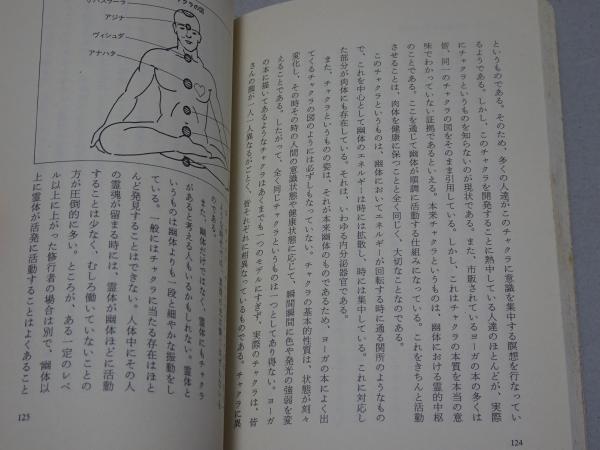 というものである。そのため、多くの人達がこのチャクラに意識を集中する瞑想を行なってい
るようである。しかし、このチャクラを開発することに熱中している人達のほとんどが、実際
にチャクラというものを知らないのが現状である。また、市販されているヨーガの本の多くは
皆、同一のチャクラの図をそのまま引用している。しかし、これはチャクラの本質を本当の意
味でわかっていない証拠であるといえる。本来チャクラというものは、幽体における霊的中枢
のことである。ここを通じて幽体が順調に活動する仕組みになっている。これをきちんと活動
させることは、肉体を健康に保つことと全く同じく、大切なことなのである。
このチャクラというものは、幽体においてエネルギーが回転する時に通る関所のようなもの
で、これを中心として幽体のエネルギーは時には拡散し、時には集中している。これに対応し
た部分が肉体にも存在している。それは、いわゆる内分泌器官である。
また、チャクラというものの姿は、それが本来幽体のものであるため、ヨーガの本によく出
てくるチャクラの図のようには必ずしもなっていない。チャクラの基本的性質は、状態が刻々
変化し、その時その時の人間の意識状態や健康状態に応じて、瞬間瞬間に色や発光の強弱を変
えることである。したがって、全く同じチャクラというものは一つとしてあり得ない。ヨーガ
の本に描いてあるようなチャクラはあくまでも一つのモデルにすぎず、実際のチャクラは、皆
さんの顔が、一人一人異なるがごとく、皆それぞれに相異なっているものである。チャクラに異
124
アジナ
ヴィシュダ
アナハタ
また、幽体だけではなく、霊体にもチャクラ
があると考える人もいるかもしれない。霊体と
いうものは幽体よりも一段と細やかな振動をし
ている。一般にはチャクラに当たる存在はほと
んど発見することはできない。人体中にその人
の霊魂が留まる時には、霊体が幽体ほどに活動
することは少なく、むしろ働いていないことの
方が圧倒的に多い。ところが、ある一定のレベ
ル以上に上がった修行者の場合は別で、幽体以
上に霊体が活発に活動することはよくあること
125